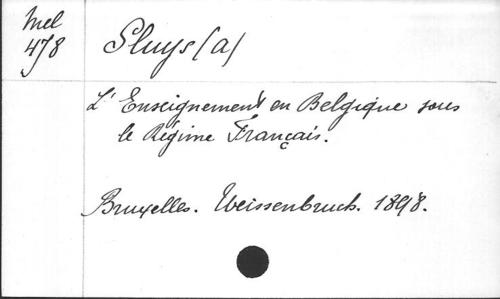 Mel
478
Sluys (a)
L'Enseignement en Belgique sous
le Régime Français.
Bruxelles. Weissenbruch. 1898.